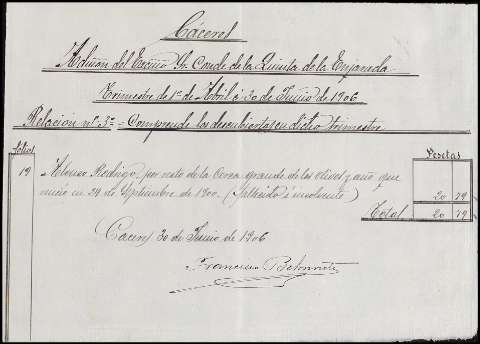 Cáceres
Admon del Excmo Sr. Conde de la Quinta de la Enjarada
Trimestre de 1º de Abril á 30 de Junio de 1906
Relación nº 3º = Comprende los descubiertos en dicho trimestre
Folios
Pesetas
19 Alonso Rodrigo por resto de la Cerca grande de los Olivos y año que
venció en 29 de Septiembre de 1900. (Fallecido é insolvente) 20 79
Total 20 79
Cáceres 30 de Junio de 1906
Francisco